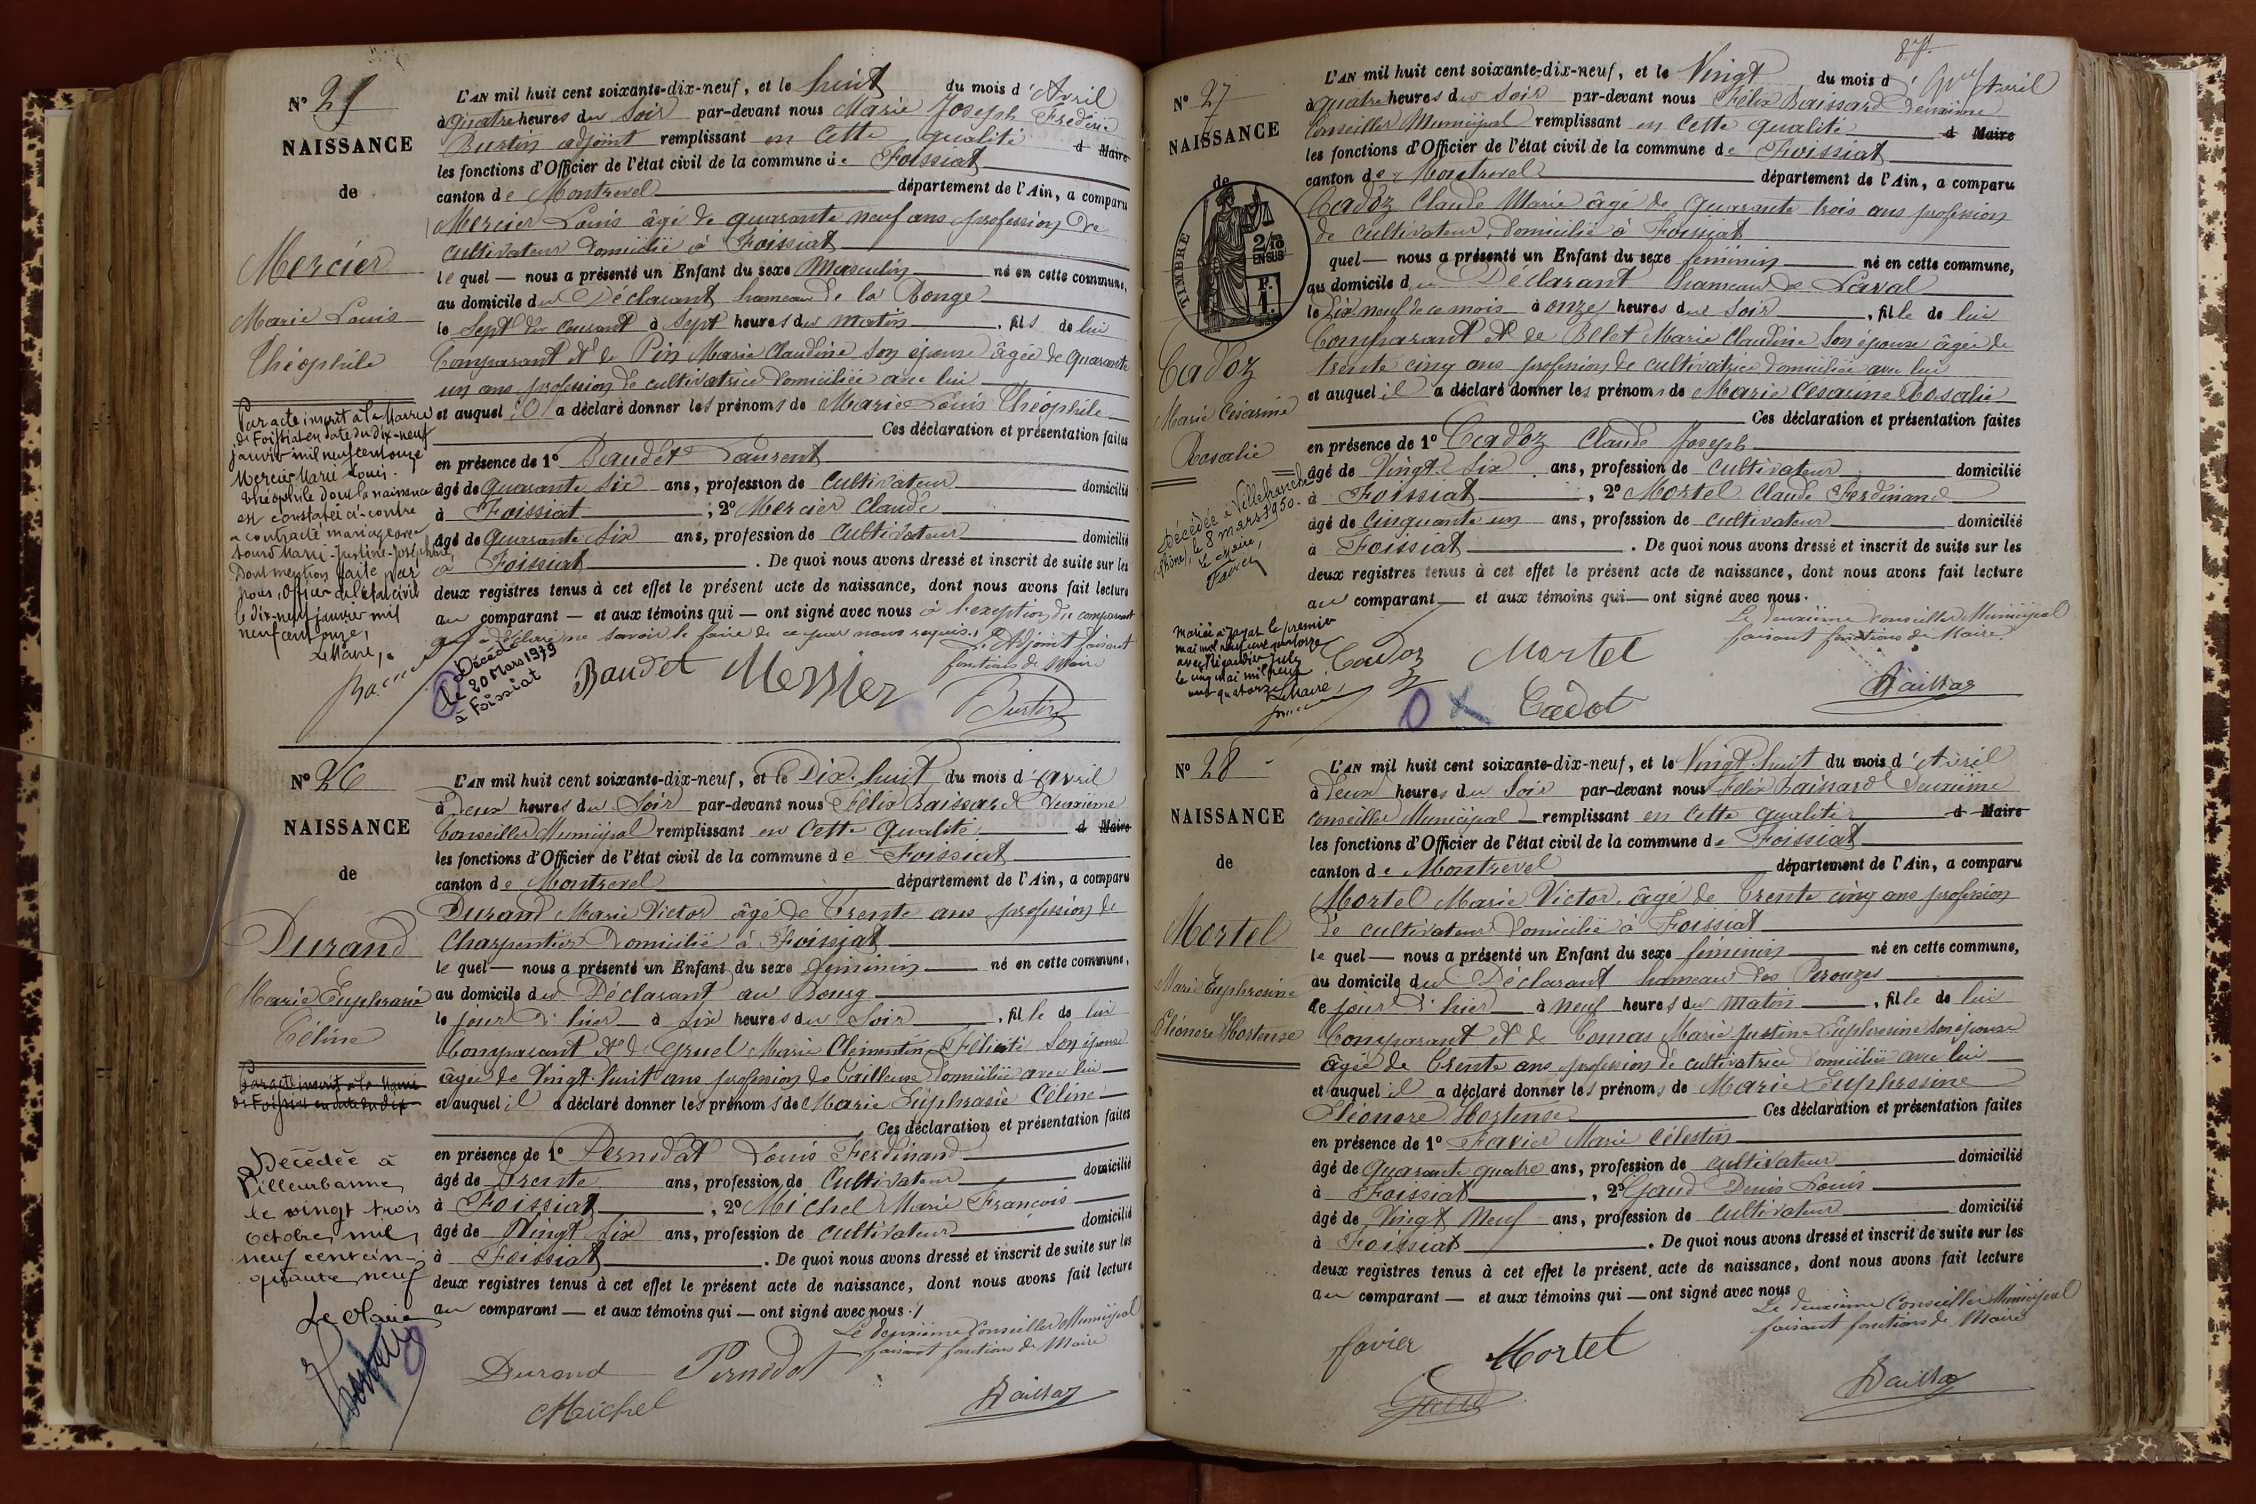 N° 25
NAISSANCE
de
Mercier
Marie Louis
Théophile
Par acte inscrit à la Mairie
de Foissiat en date du dix-neuf
janvier mil neuf cent onze
Mercier Marie Louis
Théophile dont la naissance
est constatée ci-contre
a contracté mariage avec
Marie-Justine-Joséphine
Dont mention faite par
nous, Officier de l'état civil
le dix-neuf janvier mil
neuf cent onze,
Le Maire,
L'AN mil huit cent soixante-dix-neuf, et le huit du mois d'Avril
à quatre heures du Soir par-devant nous Marie Joseph Frédéric
Burtin adjoint remplissant en Cette qualité d Maire
les fonctions d'Officier de l'état civil de la commune de Foissiat
canton de Montrevel département de l'Ain, a comparu
Mercier Louis âgé de quarante neuf ans profession de
cultivateur domicilié à Foissiat
lequel — nous a présenté un Enfant du sexe Masculin né en cette commune,
au domicile du Déclarant hameau de la Ronge
le Sept du Courant à Sept heures du matin, fils de lui
Comparant & de Pin Marie Claudine son épouse âgée de quarante
un ans profession de cultivatrice domiciliée avec lui
et auquel il a déclaré donner les prénoms de Marie Louis Théophile
Ces déclaration et présentation faites
en présence de 1° Baudet Laurent
âgé de quarante six ans, profession de Cultivateur domicilié
à Foissiat ; 2° Mercier Claude
âgé de quarante six ans, profession de cultivateur domicilié
à Foissiat . De quoi nous avons dressé et inscrit de suite sur les
deux registres tenus à cet effet le présent acte de naissance, dont nous avons fait lecture
au comparant — et aux témoins qui — ont signé avec nous à l'exception du comparant
qui a déclaré ne savoir le faire de ce par nous requis. L'Adjoint faisant
fonctions de Maire
Décédé
le 20 Mars 1979
à Foissiat
Baudet Mercier
Burtin
N° 26
NAISSANCE
de
Durand
Marie Euphrasie
Céline
Par acte inscrit à la Mairie
de Foissiat en date du dix
Décédée à
Villeurbanne
le vingt trois
octobre mil
neuf cent cin-
quante neuf
Le Maire
L'AN mil huit cent soixante-dix-neuf, et le Dix-huit du mois d'Avril
à Deux heures du Soir par-devant nous Félix Raissard Deuxième
Conseiller Municipal remplissant en Cette qualité d Maire
les fonctions d'Officier de l'état civil de la commune de Foissiat
canton de Montrevel département de l'Ain, a comparu
Durand Marie Victor âgé de Trente ans profession de
Charpentier domicilié à Foissiat
lequel — nous a présenté un Enfant du sexe féminin né en cette commune,
au domicile du Déclarant au Bourg
le jour d'hier à six heures du Soir, fille de lui
Comparant & de Gruel Marie Clémentine Félicité Son épouse
âgée de Vingt-huit ans profession de tailleuse domiciliée avec lui
et auquel il a déclaré donner les prénoms de Marie Euphrasie Céline
Ces déclaration et présentation faites
en présence de 1° Pernodat Louis Ferdinand
âgé de Trente ans, profession de Cultivateur domicilié
à Foissiat , 2° Michel Marie François
âgé de Vingt six ans, profession de cultivateur domicilié
à Foissiat . De quoi nous avons dressé et inscrit de suite sur les
deux registres tenus à cet effet le présent acte de naissance, dont nous avons fait lecture
au comparant — et aux témoins qui — ont signé avec nous
Le deuxième Conseiller Municipal
faisant fonctions de Maire
Durand Pernodat
Michel
N° 27
NAISSANCE
de
TIMBRE
2/10
EN SUS
F.
1.
Cadoz
Marie Césarine
Rosalie
Décédée à Villefranche
(Rhône) le 8 mars 1950.
Le Maire,
Favier
Mariée à Jayat le premier
mai mil neuf cent quatorze
avec
le cinq mai mil neuf
cent quatorze
Le Maire,
L'AN mil huit cent soixante-dix-neuf, et le Vingt du mois d'Avril
à quatre heures du Soir par-devant nous Félix Raissard Deuxième
Conseiller Municipal remplissant en Cette qualité d Maire
les fonctions d'Officier de l'état civil de la commune de Foissiat
canton de Montrevel département de l'Ain, a comparu
Cadoz Claude Marie âgé de quarante trois ans profession
de cultivateur domicilié à Foissiat
quel — nous a présenté un Enfant du sexe féminin né en cette commune,
au domicile du Déclarant hameau de Laval
le Dix neuf de ce mois à onze heures du Soir, fille de lui
Comparant & de Belet Marie Claudine Son épouse âgée de
trente cinq ans profession de cultivatrice domiciliée avec lui
et auquel il a déclaré donner les prénoms de Marie Césarine Rosalie
Ces déclaration et présentation faites
en présence de 1° Cadoz Claude Joseph
âgé de Vingt Six ans, profession de cultivateur domicilié
à Foissiat , 2° Mortel Claude Ferdinand
âgé de Cinquante un ans, profession de cultivateur domicilié
à Foissiat . De quoi nous avons dressé et inscrit de suite sur les
deux registres tenus à cet effet le présent acte de naissance, dont nous avons fait lecture
au comparant — et aux témoins qui — ont signé avec nous.
Le deuxième Conseiller Municipal
faisant fonctions de Maire
Cadoz Mortel
Cadot
N° 28
NAISSANCE
de
Mortel
Marie Euphrosine
Eléonore Hortense
L'AN mil huit cent soixante-dix-neuf, et le Vingt-huit du mois d'Avril
à Deux heures du Soir par-devant nous Félix Raissard Deuxième
Conseiller Municipal remplissant en Cette qualité d Maire
les fonctions d'Officier de l'état civil de la commune de Foissiat
canton de Montrevel département de l'Ain, a comparu
Mortel Marie Victor âgé de Trente cinq ans profession
de cultivateur domicilié à Foissiat
lequel — nous a présenté un Enfant du sexe féminin né en cette commune,
au domicile du Déclarant hameau des Perouzes
le jour d'hier à neuf heures du matin, fille de lui
Comparant & de Comas Marie Justine Euphrosine son épouse
âgée de Trente ans profession de cultivatrice domiciliée avec lui
et auquel il a déclaré donner les prénoms de Marie Euphrosine
Eléonore Hortense Ces déclaration et présentation faites
en présence de 1° Favier Marie Célestin
âgé de Quarante quatre ans, profession de cultivateur domicilié
à Foissiat , 2° Gaud Denis Louis
âgé de Vingt Neuf ans, profession de cultivateur domicilié
à Foissiat . De quoi nous avons dressé et inscrit de suite sur les
deux registres tenus à cet effet le présent acte de naissance, dont nous avons fait lecture
au comparant — et aux témoins qui — ont signé avec nous
Le deuxième Conseiller Municipal
faisant fonctions de Maire
favier Mortel
Gaud